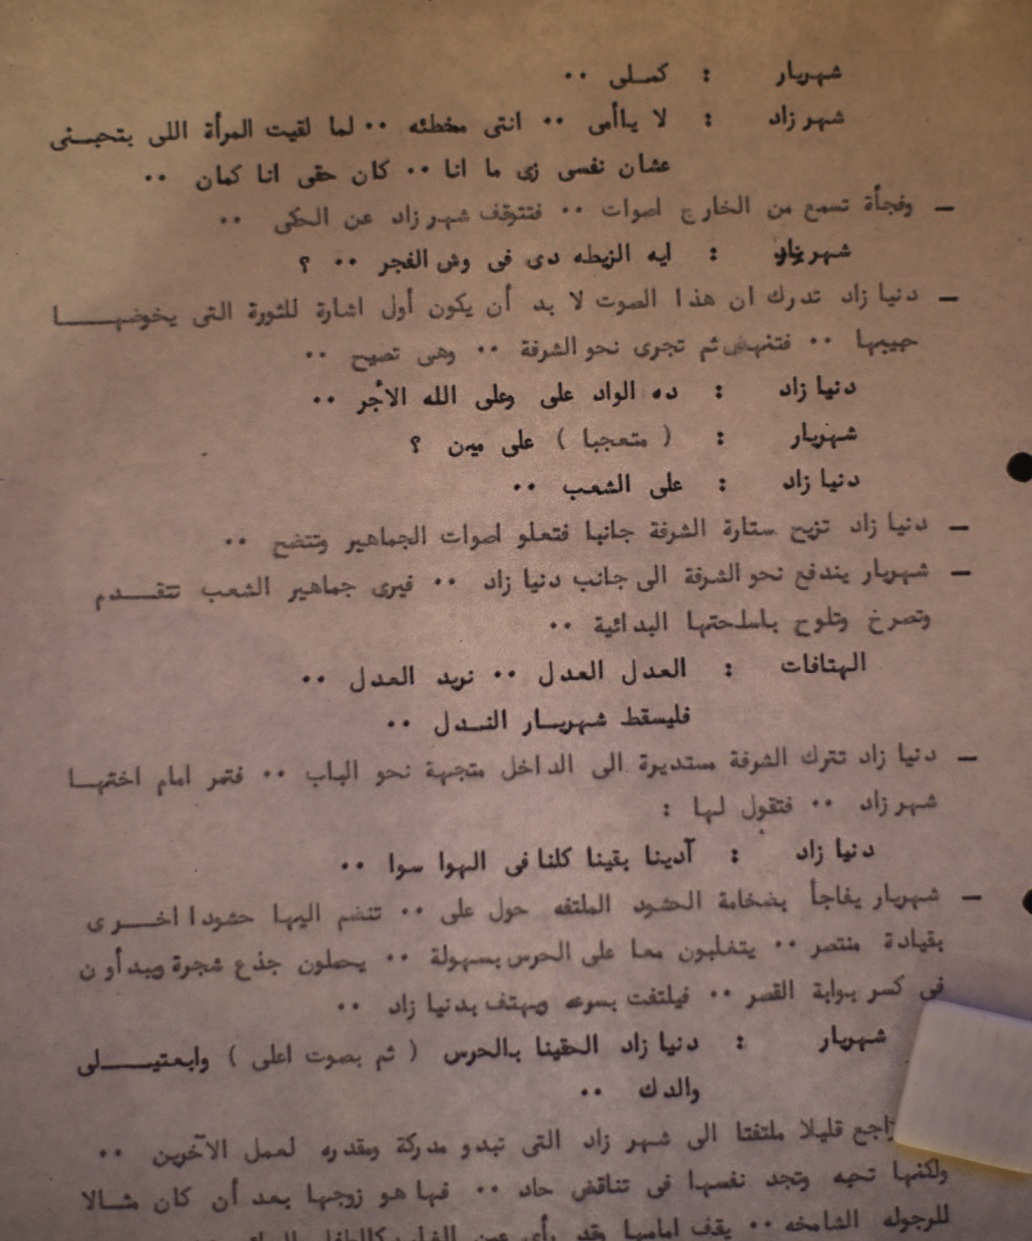 شهريار : كملى ..
شهر زاد : لا ياأمى .. انتى مخطئه .. لما لقيت المرأة اللى بتحبنى
عشان نفسى زى ما انا .. كان حقى انا كمان ..
ـ وفجأة تسمع من الخارج اصوات .. فتتوقف شهر زاد عن الحكى ..
شهريار : ايه الزيطه دى فى وش الفجر .. ؟
ـ دنيا زاد تدرك ان هذا الصوت لا بد أن يكون أول اشارة للثورة التى يخوضهـــا
حبيبها .. فتنهض ثم تجرى نحو الشرفة .. وهى تصيح ..
دنيا زاد : ده الواد على وعلى الله الأجر ..
شهريار : ( متعجبا ) على مين ؟
دنيا زاد : على الشعب ..
ـ دنيا زاد تزيح ستارة الشرفة جانبا فتعلو اصوات الجماهير وتتضح ..
ـ شهريار يندفع نحو الشرفة الى جانب دنيا زاد .. فيرى جماهير الشعب تتقـــدم
وتصرخ وتلوح باسلحتها البدائية ..
الهتافات : العدل العدل .. نريد العدل ..
فليسقط شهريـــار النـدل ..
ـ دنيا زاد تترك الشرفة مستديرة الى الداخل متجهة نحو الباب .. فتمر امام اختهـــا
شهر زاد .. فتقول لها :
دنيا زاد : آدينا بقينا كلنا فى الهوا سوا ..
ـ شهريار يفاجأ بضخامة الحشود الملتفه حول على .. تنضم اليها حشودا اخـــرى
بقيادة منتصر .. يتغلبون معا على الحرس بسهولة .. يحملون جذع شجرة ويبدأون
فى كسر بوابة القصر .. فيلتفت بسرعه ويهتف بدنيا زاد ..
شهريار : دنيا زاد الحقينا بالحرس ( ثم بصوت اعلى ) وابعتيـــلى
والدك ..
قليلا ملتفتا الى شهر زاد التى تبدو مدركة ومقدره لعمل الآخرين ..
ولكنها تحبه وتجد نفسها فى تناقض حاد .. فها هو زوجها بعد أن كان مثـالا
للرجوله الشامخه .. يقف امامها وقد